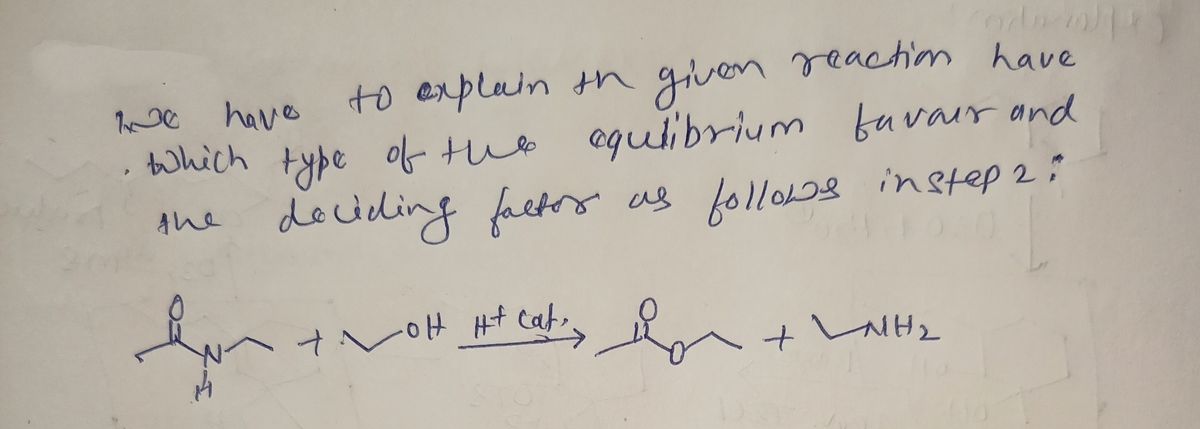 We have to explain in given reaction have
. which type of the equlibrium favour and
the deciding factor as follows in step 2:
O
N
H
+
OH
H+ Cat.
O
O
+
NH2